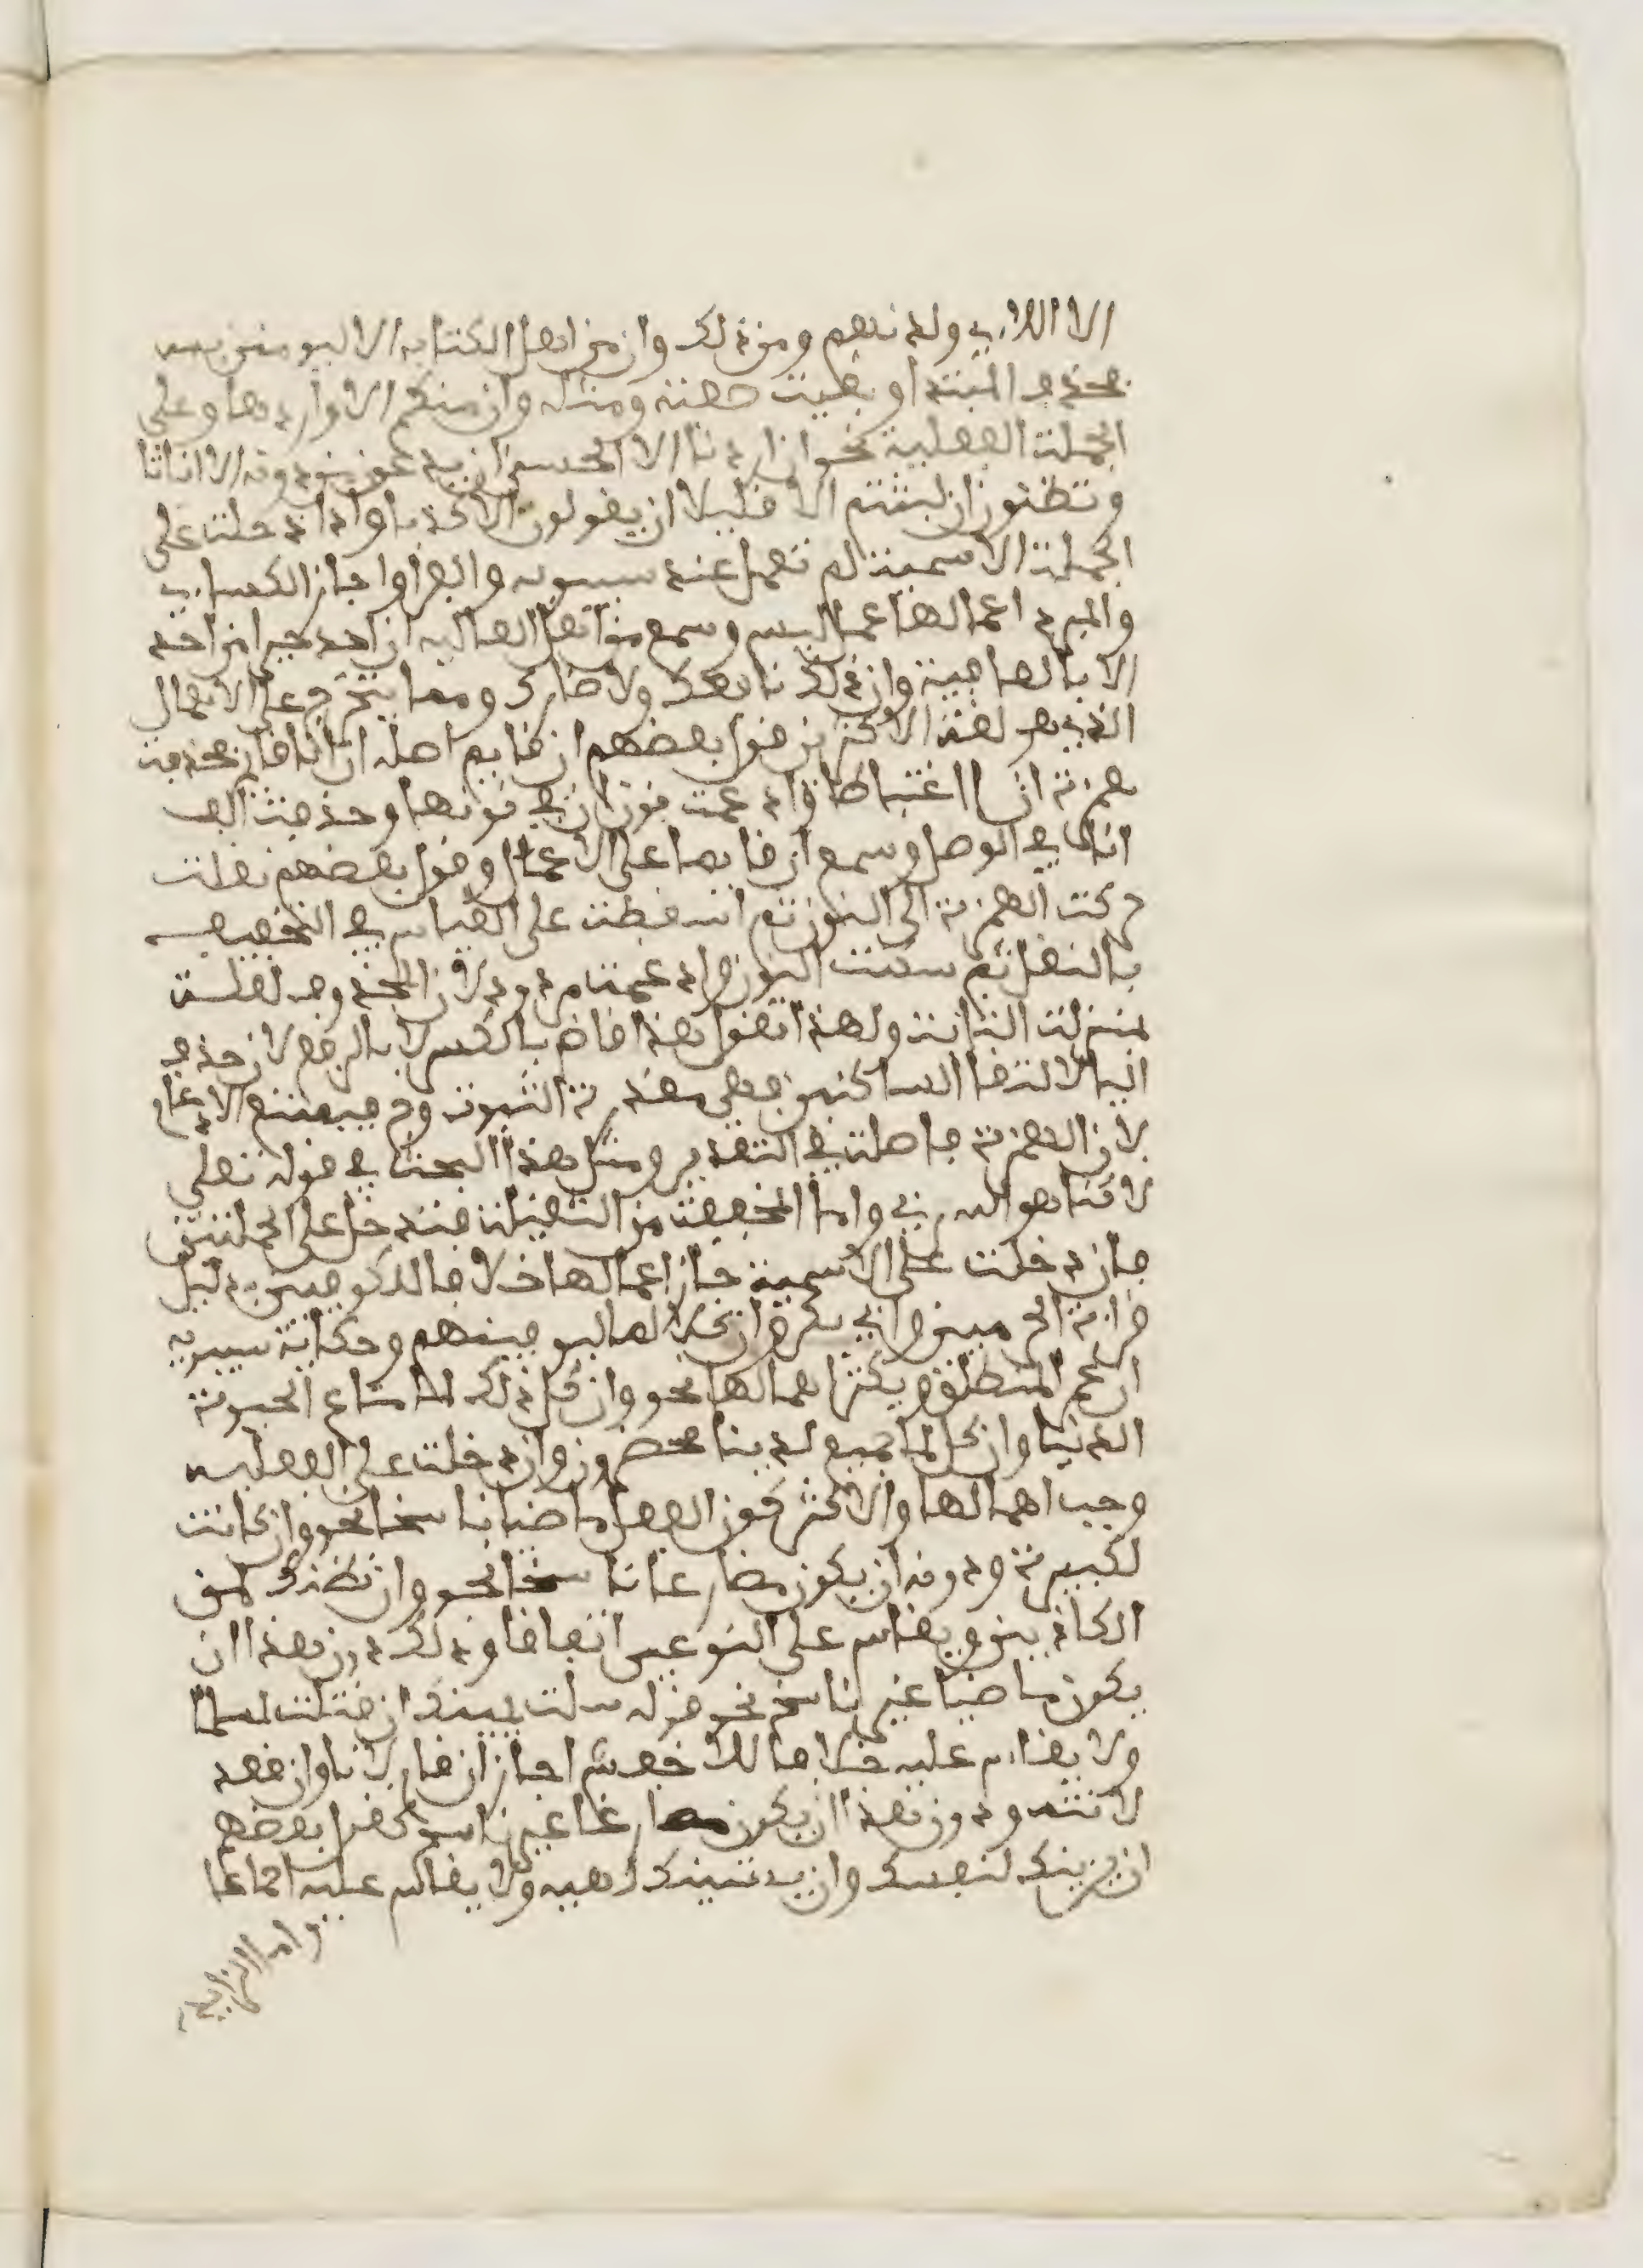 الا اللاءي ولدنهم ومن ذلك وان من اهل الكتاب الا ليومنن به
فحذف المبتدا وبقيت صفته ومثله وان منكم الا واردها وعلى
الجملة الفعلية نحو ان اردنا الا الحسنى ان يدعون من دونه الا اناثا
وتظنون ان لبثتم الا قليلا ان يقولون الا كذبا واذا دخلت على
الجملة الاسمية لم تعمل عند سيبويه والفرا واجاز الكساءي
والمبرد اعمالها عمل ليس وسمع من اهل العالية ان احد خيرا من احد
الا بالعافية وان ذلك نافعك ولا ضارك ومما يتخرج على الاهمال
الذي هو لغة الاكثرين قول بعضهم ان قايم اصله ان انا قايم فحذفت
همزة انا اعتباطا وادغمت نون ان في نونها وحذفت الف
انا في الوصل وسمع ان قايما على الاعمال وقول بعضهم نقلت
حركة الهمزة الى النون ثم اسقطت على القياس في التخفيف
بالنقل ثم سكنت النون وادغمت مردود لان المحذوف لعلة
بمنزلة الثابت ولهذا تقول هذا قاض بالكسر لا بالرفع لان حذف
اليا لالتقا الساكنين فهي مقدرة الثبوت وح فيمتنع الادغام
لان الهمزة فاصلة في التقدير ومثل هذا البحث في قوله تعلى
لاكنا هو الله ربي واما المخففة من الثقيلة فتدخل على الجملتين
فان دخلت على الاسمية جاز اعمالها خلافا للكوفيين بدليل
قراءة الحرميين وابي بكر وان كلا لما ليوفينهم وحكاية سيبويه
ان عمرا لمنطلق ويكثر اهمالها نحو وان كل ذلك لما متاع الحيوة
الدنيا وان كل لما جميع لدينا محضرون وان دخلت على الفعلية
وجب اهمالها والاكثر كون الفعل ماضيا ناسخا نحو وان كانت
لكبيرة ودونه ان يكون مضارعا ناسخا نحو وان نظنك لمن
الكاذبين ويقاس على النوعين اتفاقا ودون هذا ان
يكون ماضيا غير ناسخ نحو قوله شلت يمينك ان قتلت لمسلما
ولا يقاس عليه خلافا للاخفش اجاز ان قام لانا وان قعد
لانت ودون هذا ان يكون مضارعا غير ناسخ كقول بعضهم
ان يزينك لنفسك وان يشينك لهيه ولا يقاس عليه اجماعا
واما الرابع